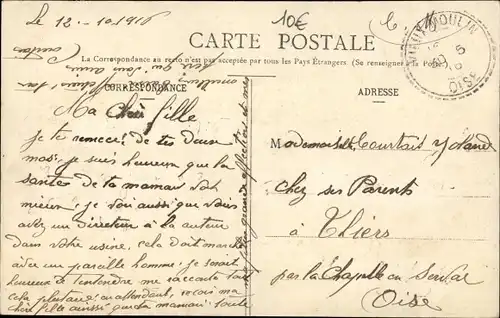 Le 12-10-1916
10€
CARTE POSTALE
La Correspondance au recto n'est pas acceptée par tous les Pays Étrangers. (Se renseigner à la Poste)
CORRESPONDANCE
ADRESSE
OISE
Ma Chère fille
je te remerci de tes deux
mots, je suis heureux que la
santée de ta maman vat
mieux, je voi aussi que vous
avez un directeur à la auteur
dans votre usine, cela doit marché
avec un pareille homme, je serait
heureux de l'entendre me raconté tout
cela plutard en attendant, reçois ma
chère fille aussi que ta maman toute
grande affection et mes
Mademoiselle Courtait Yoland
Chez ses Parents
à Thiers
par la Chapelle en Serval
Oise